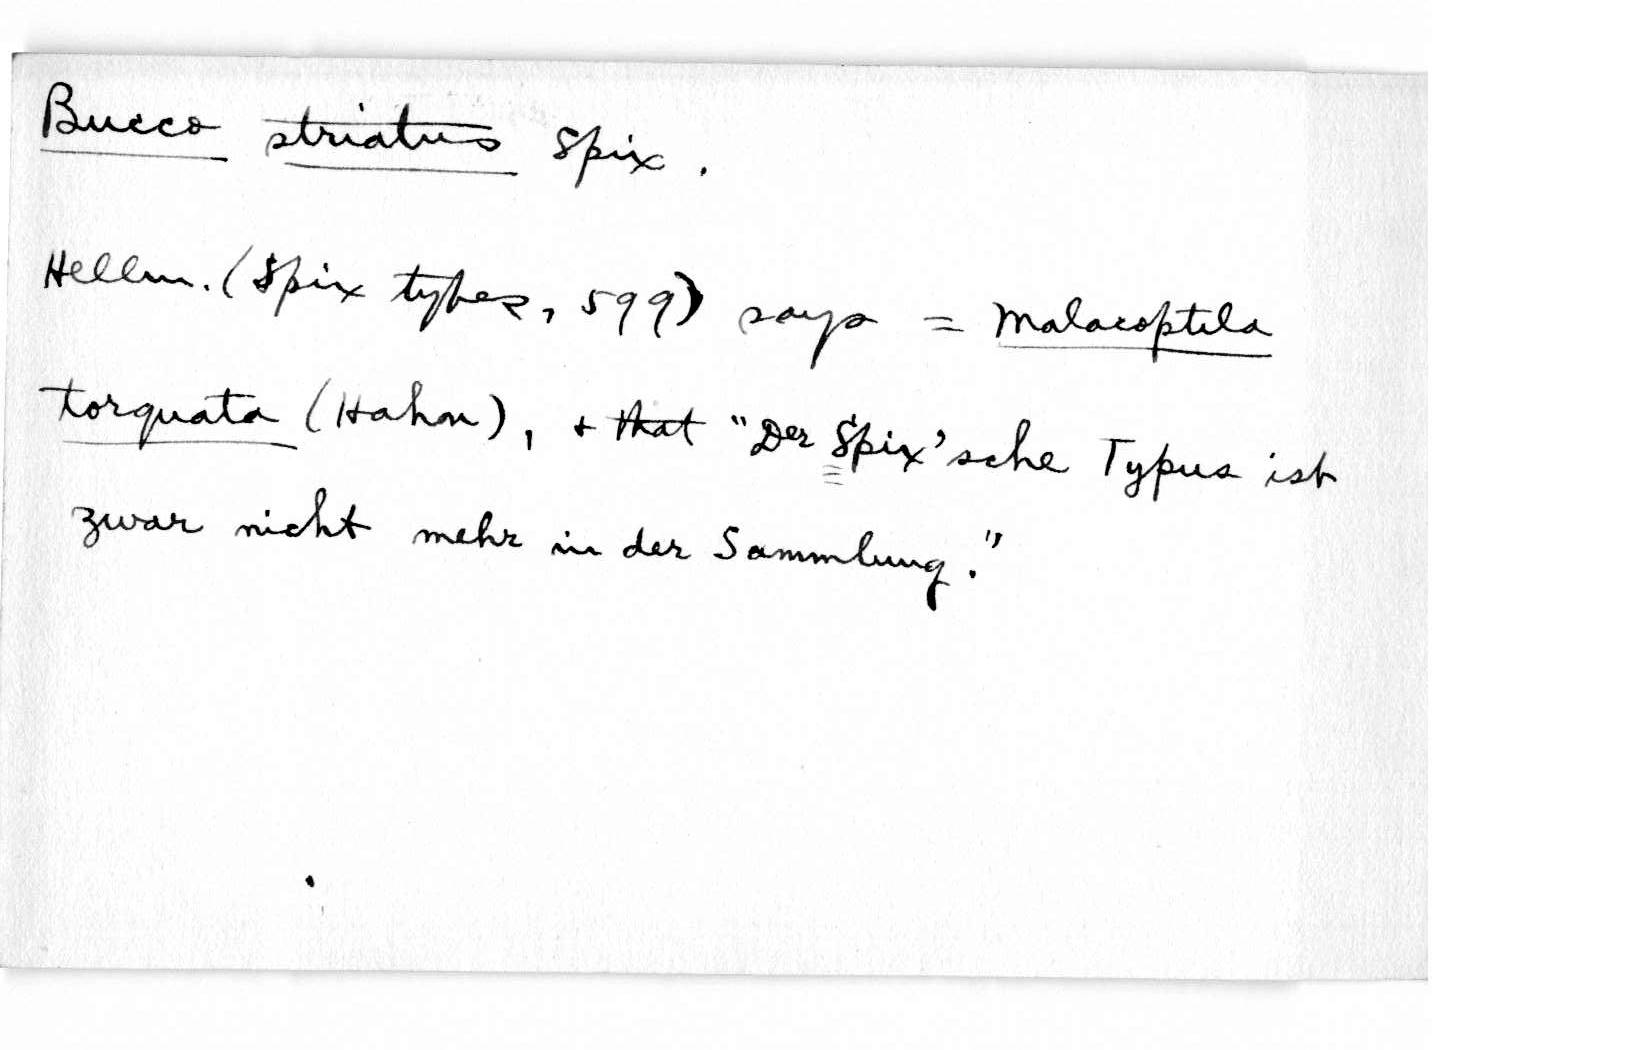 Bucco striatus Spix.
Hellm. (Spix types, 599) says = Malacoptila
torquata (Hahn), + that "Der Spix'sche Typus ist
zwar nicht mehr in der Sammlung."